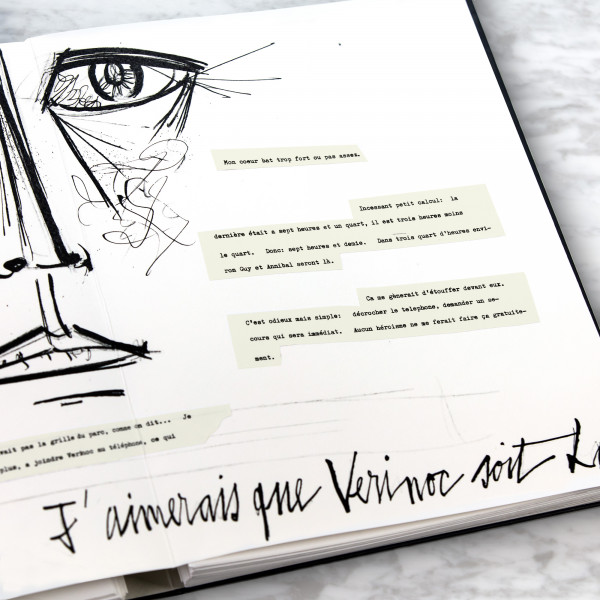 Mon coeur bat trop fort ou pas assez.
Incessant petit calcul: la
dernière était a sept heures et un quart, il est trois heures moins
le quart. Donc: sept heures et demie. Dans trois quart d'heures envi-
ron Guy et Annibal seront là.
Ca me gènerait d'étouffer devant eux.
C'est odieux mais simple: décrocher le telephone, demander un se-
cours qui sera immédiat. Aucun héroïsme ne me ferait faire ça gratuite-
ment.
vait pas la grille du parc, comme on dit... Je
plus, a joindre Verinoc au téléphone, ce qui
J'aimerais que Verinoc soit